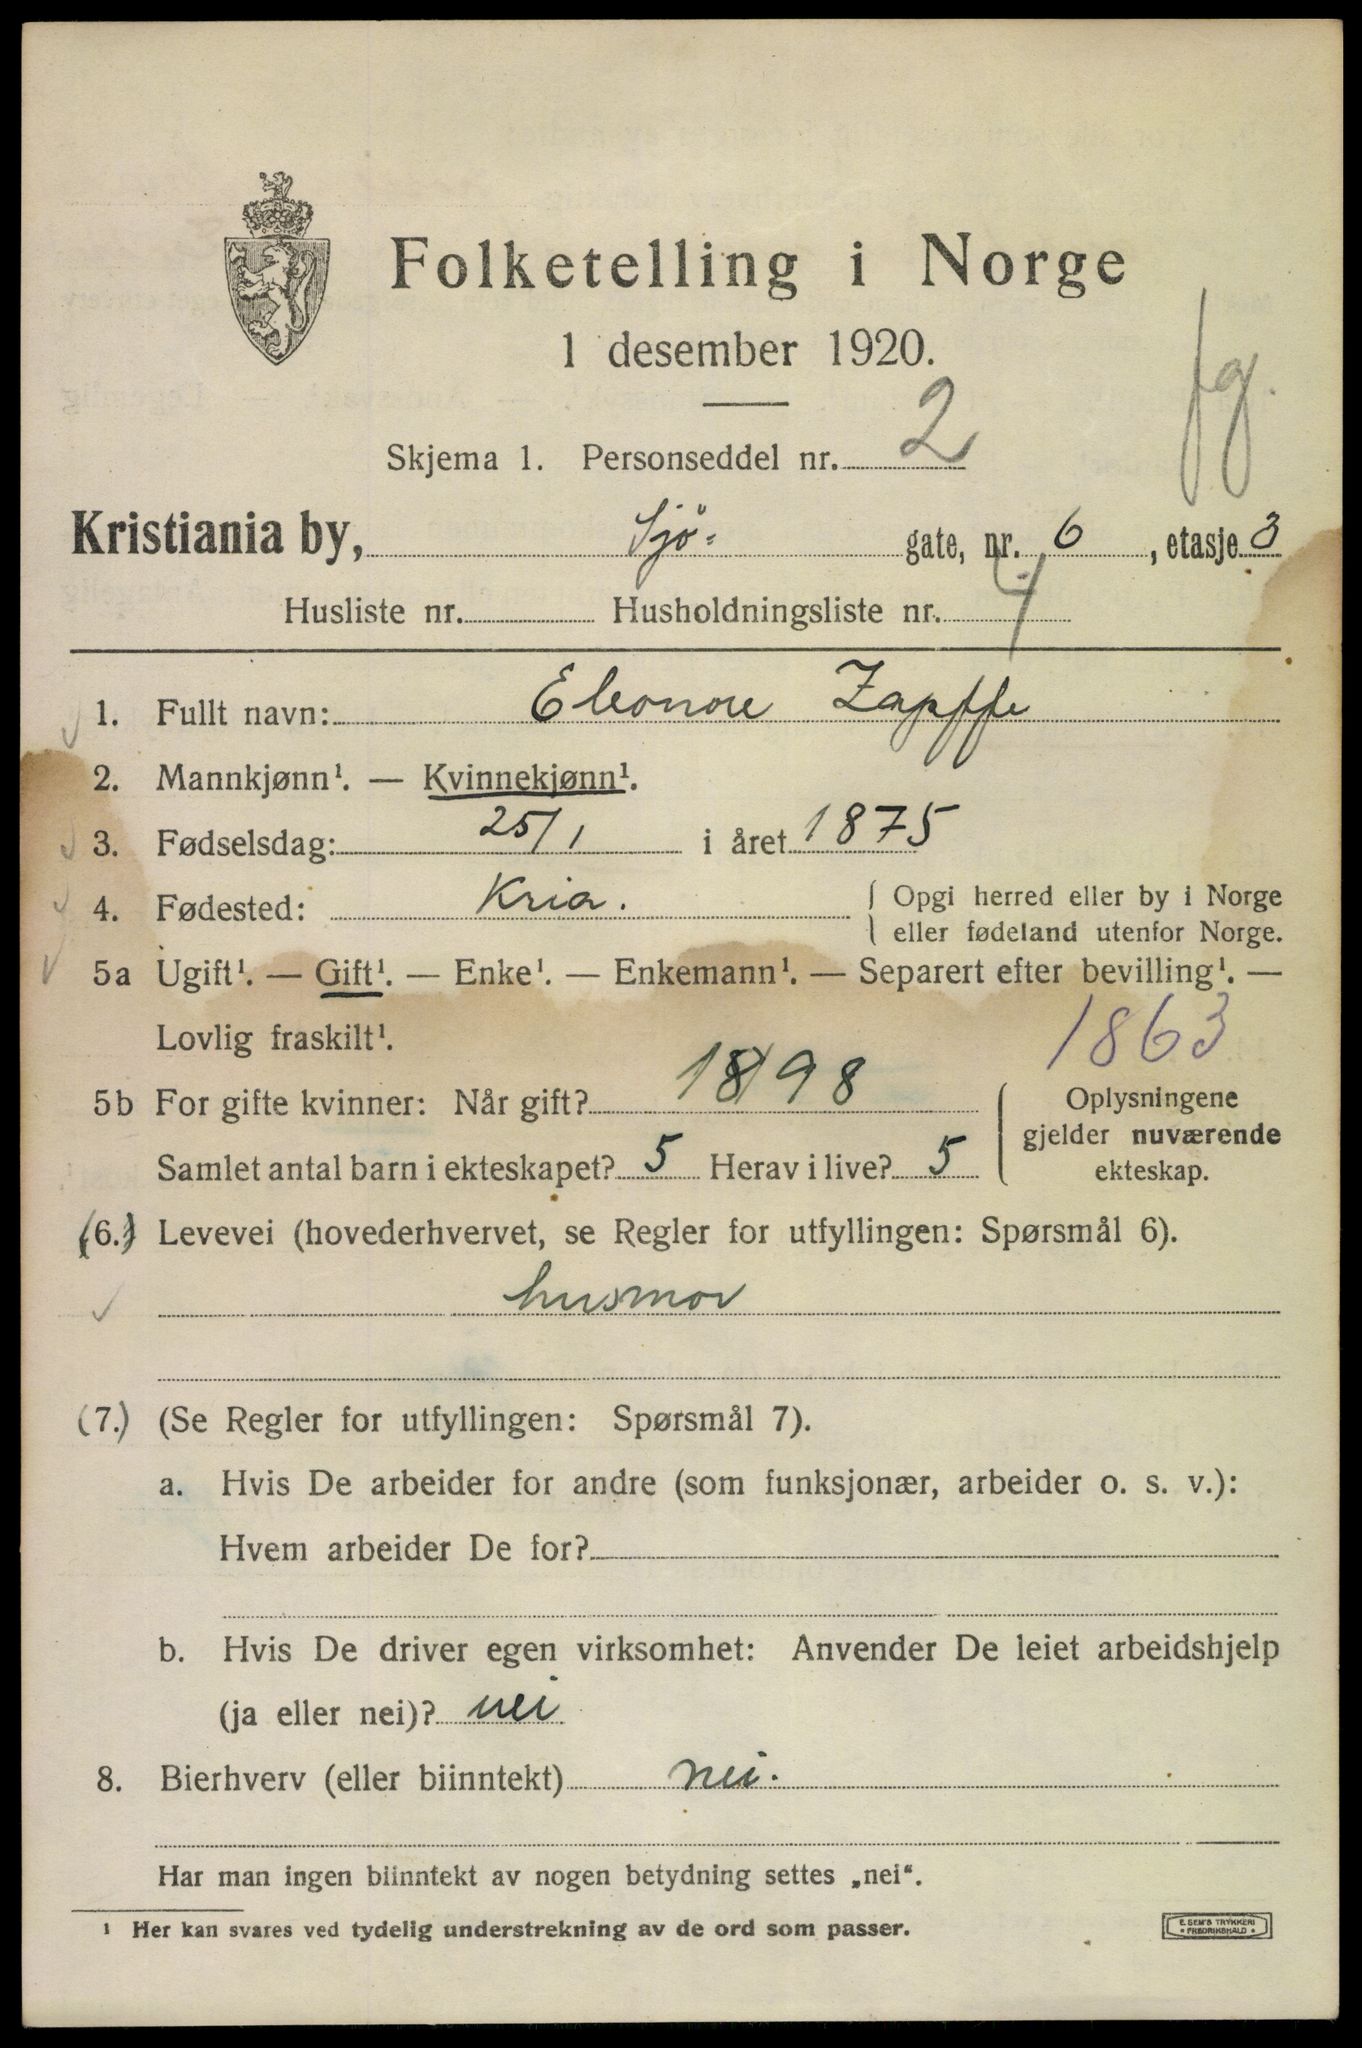 Folketelling i Norge
1 desember 1920.
fg.
Skjema 1. Personseddel nr. 2
Kristiania by, Sjö- gate, nr. 6, etasje 3
Husliste nr. Husholdningsliste nr. 4
1. Fullt navn: Eleonore Zapffe
2. Mannkjønn¹. — Kvinnekjønn¹.
3. Fødselsdag: 25/1 i året 1875
4. Fødested: Kria. { Opgi herred eller by i Norge
eller fødeland utenfor Norge.
5a Ugift¹. — Gift¹. — Enke¹. — Enkemann¹. — Separert efter bevilling¹. —
Lovlig fraskilt¹. 1863
5b For gifte kvinner: Når gift? 1898
Samlet antal barn i ekteskapet? 5 Herav i live? 5
Oplysningene
gjelder nuværende
ekteskap.
(6.) Levevei (hovederhvervet, se Regler for utfyllingen: Spørsmål 6).
husmor
(7.) (Se Regler for utfyllingen: Spørsmål 7).
a. Hvis De arbeider for andre (som funksjonær, arbeider o. s. v.):
Hvem arbeider De for?
b. Hvis De driver egen virksomhet: Anvender De leiet arbeidshjelp
(ja eller nei)? nei
8. Bierhverv (eller biinntekt) nei.
Har man ingen biinntekt av nogen betydning settes „nei“.
¹ Her kan svares ved tydelig understrekning av de ord som passer.
E. SEM'S TRYKKERI
• FREDRIKSHALD •